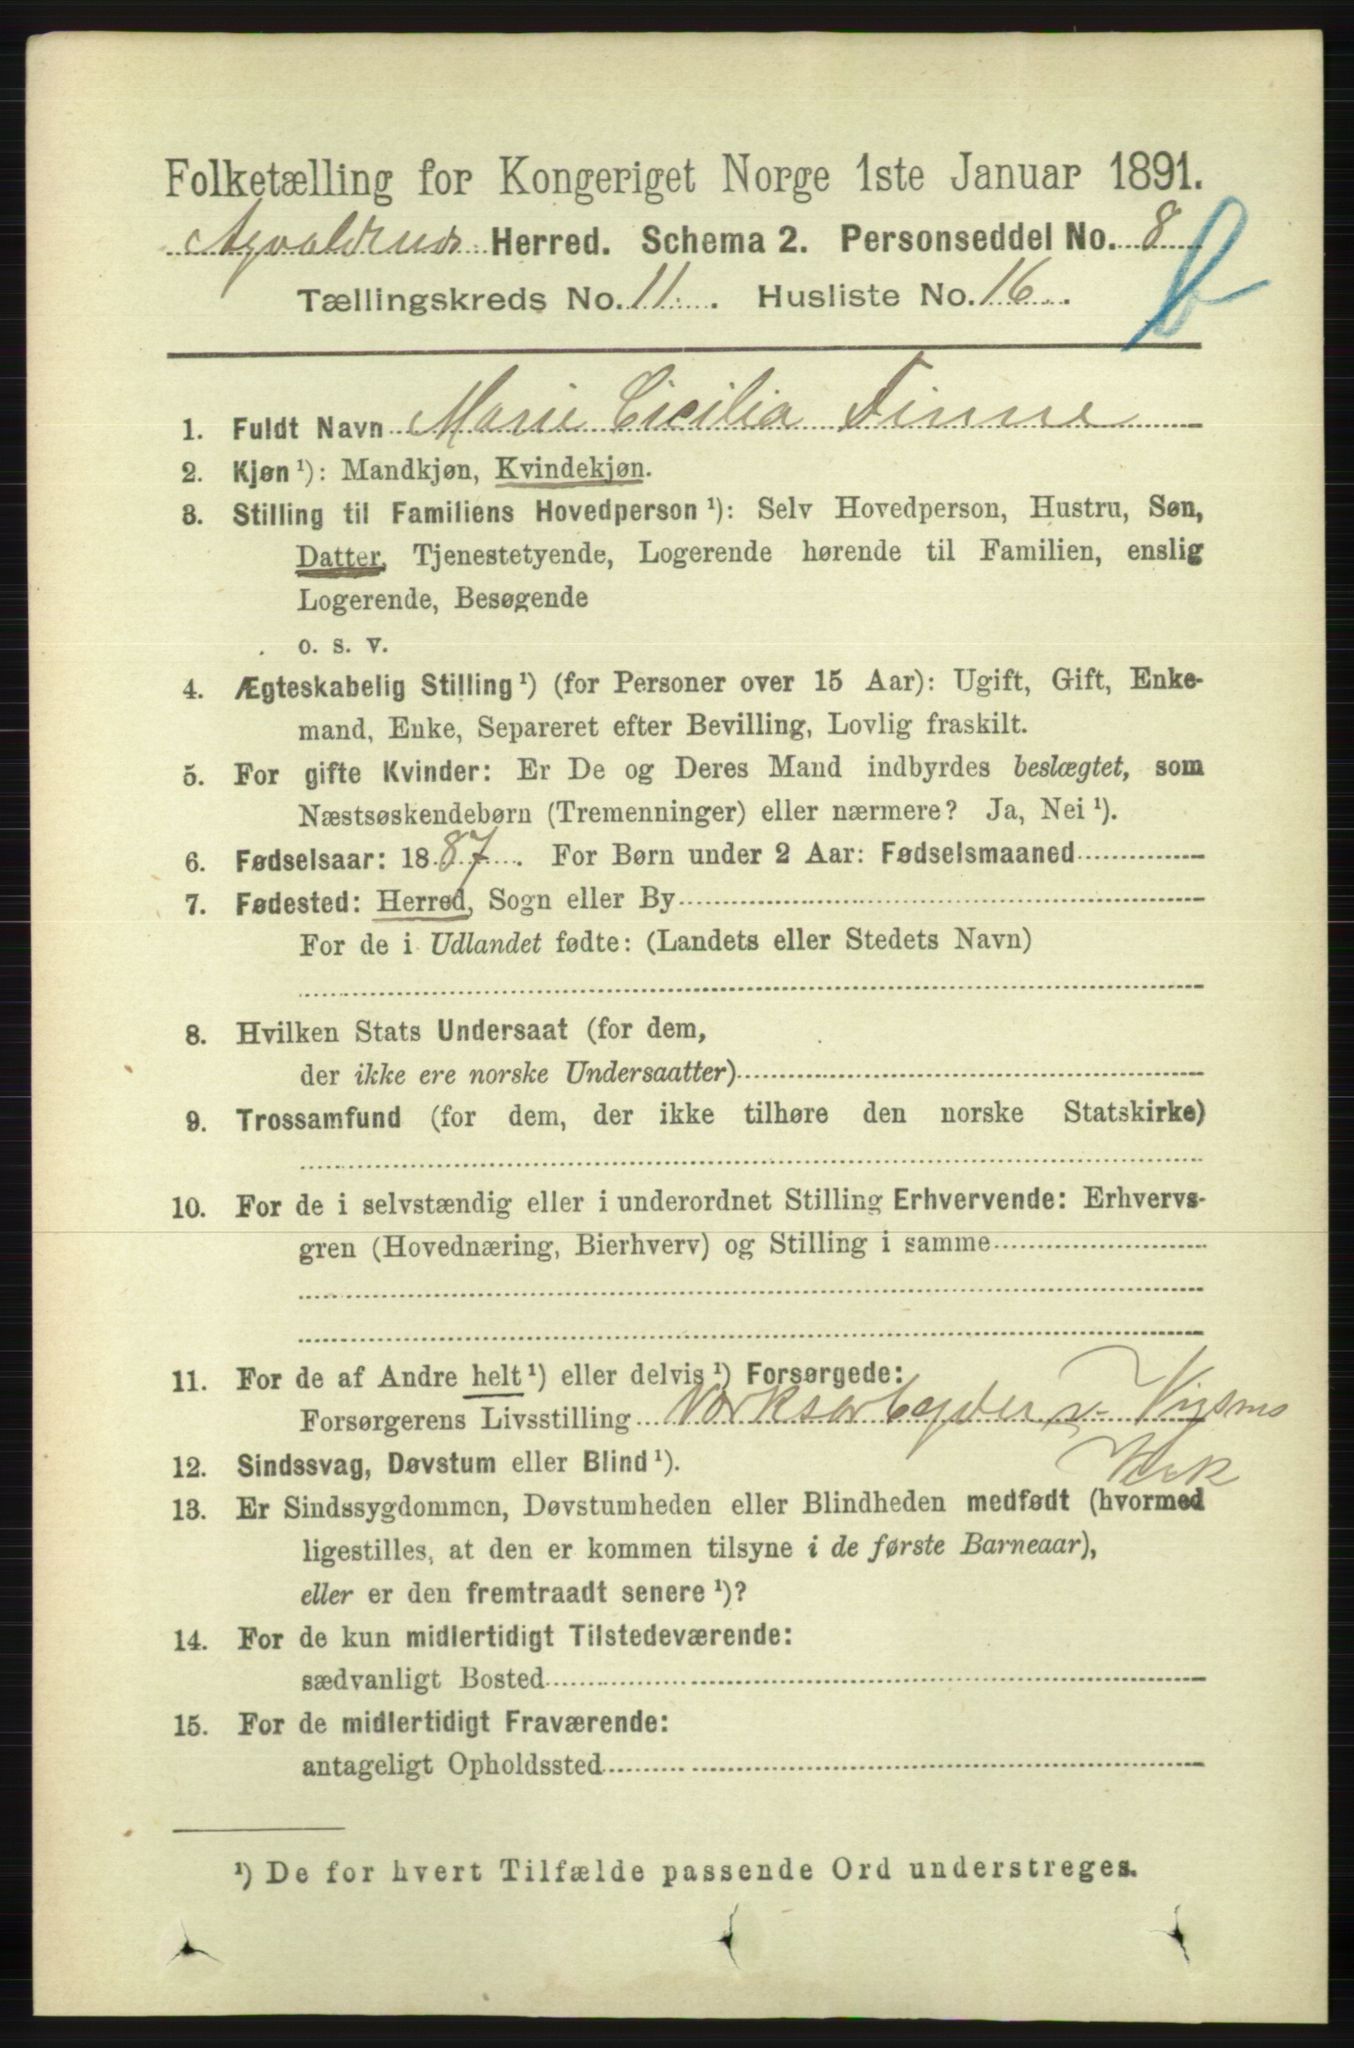 Folketælling for Kongeriget Norge 1ste Januar 1891.
Avaldsnes Herred. Schema 2. Personseddel No. 8
Tællingskreds No. 11. Husliste No. 16.
1. Fuldt Navn Marie Cicilia Finne
2. Kjøn ¹): Mandkjøn, Kvindekjøn.
3. Stilling til Familiens Hovedperson ¹): Selv Hovedperson, Hustru, Søn,
Datter, Tjenestetyende, Logerende hørende til Familien, enslig
Logerende, Besøgende
o. s. v.
4. Ægteskabelig Stilling ¹) (for Personer over 15 Aar): Ugift, Gift, Enke-
mand, Enke, Separeret efter Bevilling, Lovlig fraskilt.
5. For gifte Kvinder: Er De og Deres Mand indbyrdes beslægtet, som
Næstsøskendebørn (Tremenninger) eller nærmere? Ja, Nei ¹).
6. Fødselsaar: 1887. For Børn under 2 Aar: Fødselsmaaned
7. Fødested: Herred, Sogn eller By
For de i Udlandet fødte: (Landets eller Stedets Navn)
8. Hvilken Stats Undersaat (for dem,
der ikke ere norske Undersaatter)
9. Trossamfund (for dem, der ikke tilhøre den norske Statskirke)
10. For de i selvstændig eller i underordnet Stilling Erhvervende: Erhvervs-
gren (Hovednæring, Bierhverv) og Stilling i samme
11. For de af Andre helt ¹) eller delvis ¹) Forsørgede:
Forsørgerens Livsstilling Værksarbeyder v. Vigsnes
Værk
12. Sindssvag, Døvstum eller Blind ¹).
13. Er Sindssygdommen, Døvstumheden eller Blindheden medfødt (hvormed
ligestilles, at den er kommen tilsyne i de første Barneaar),
eller er den fremtraadt senere ¹)?
14. For de kun midlertidigt Tilstedeværende:
sædvanligt Bosted
15. For de midlertidigt Fraværende:
antageligt Opholdssted
¹) De for hvert Tilfælde passende Ord understreges.